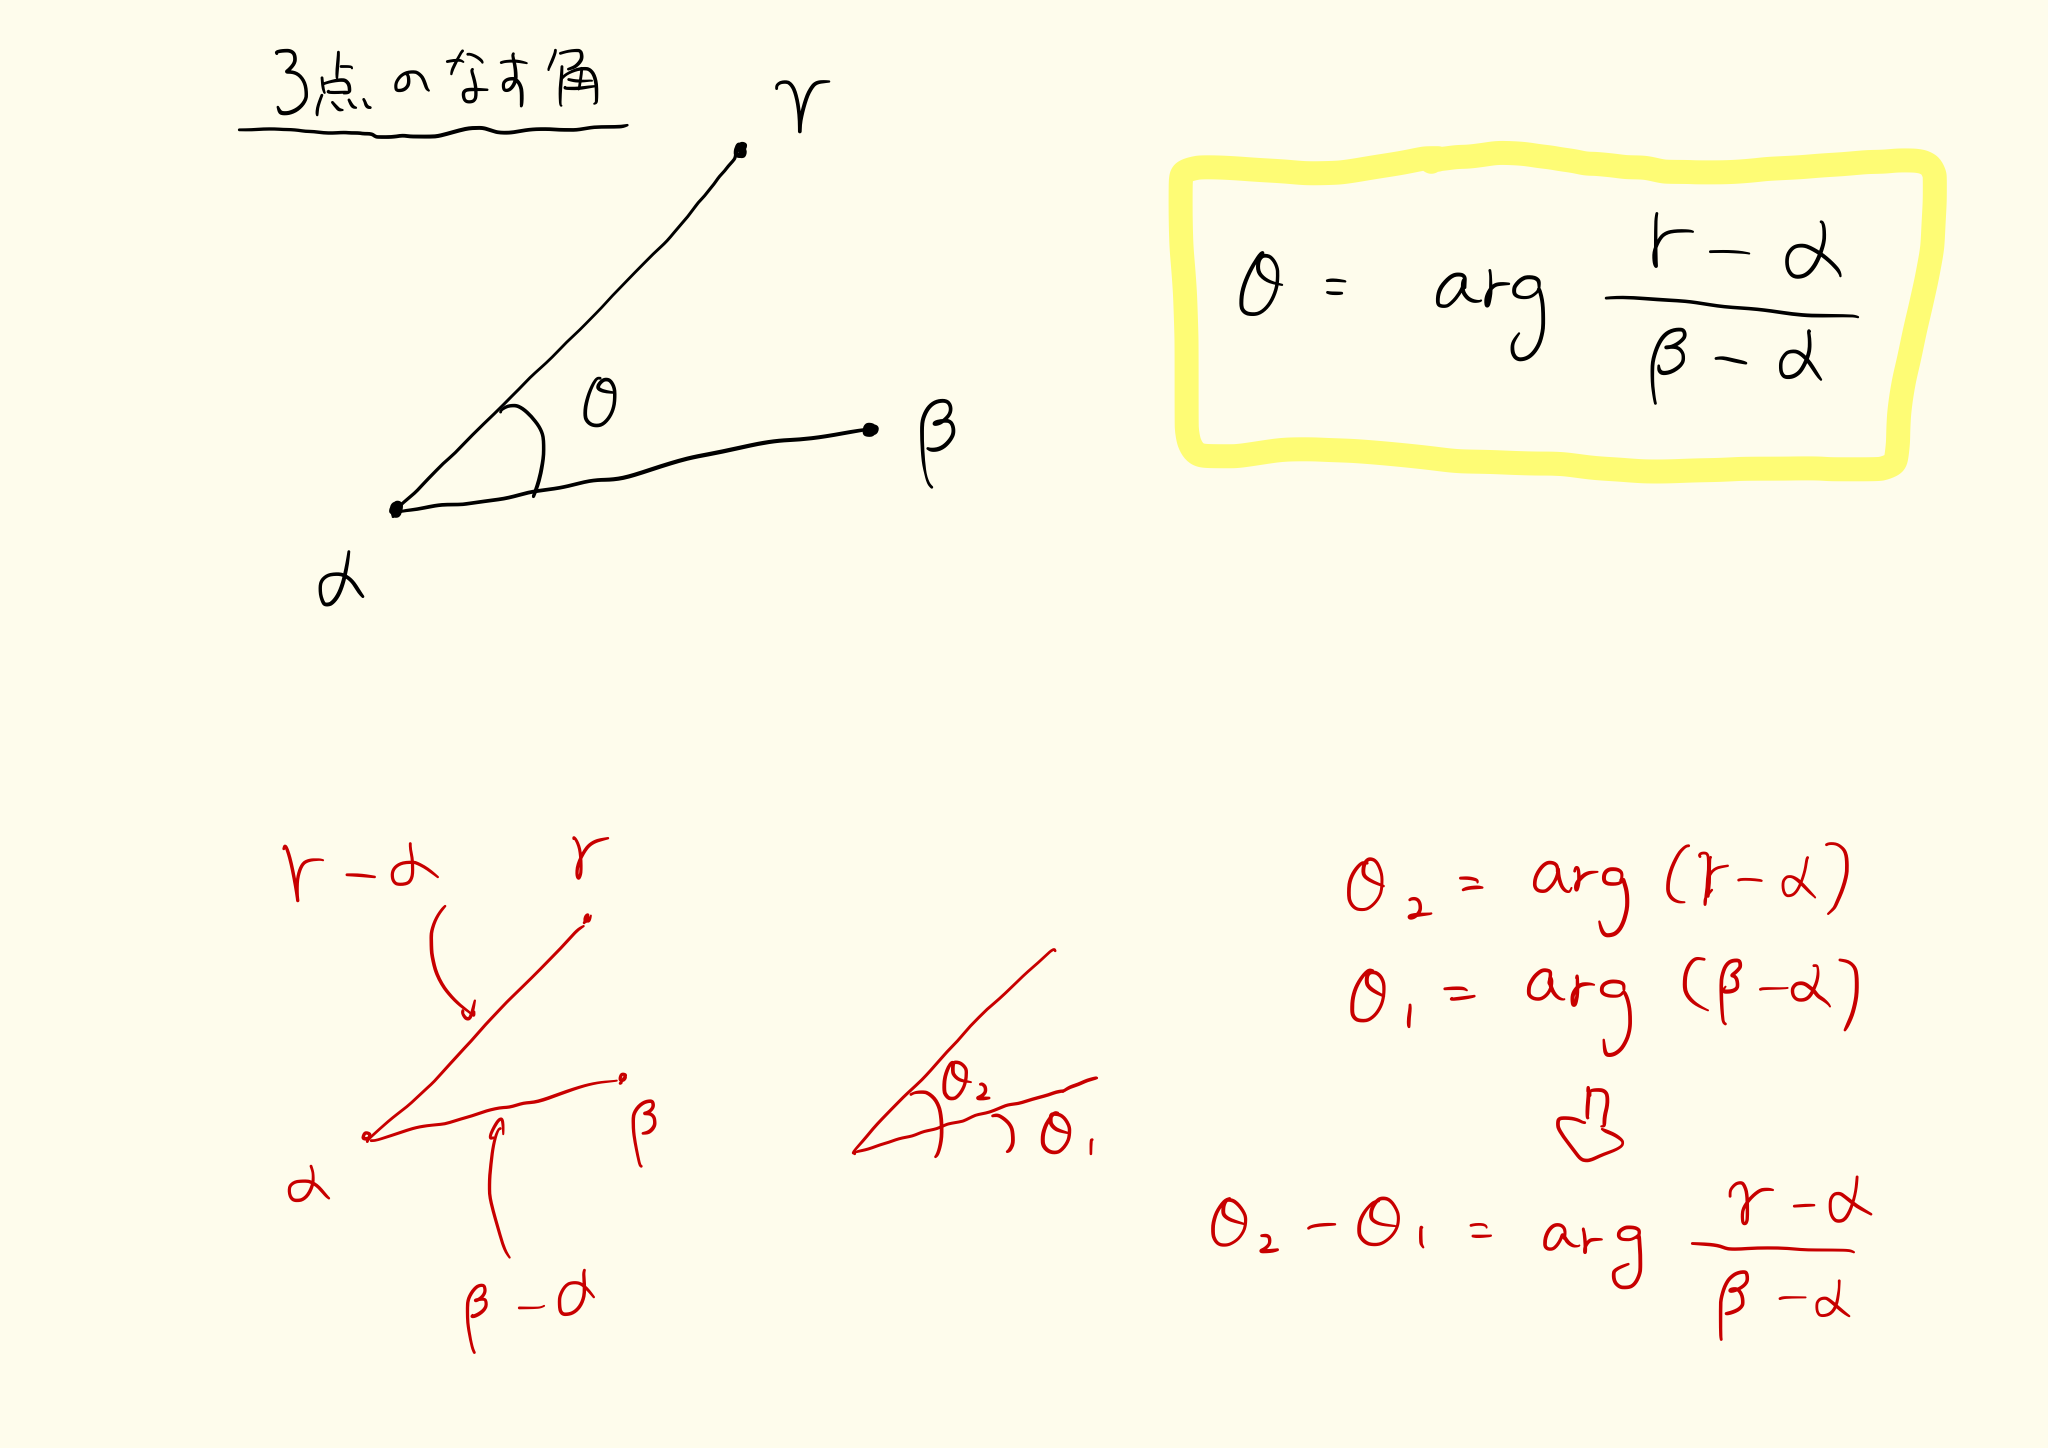 3点のなす角
γ
θ
β
α
θ = arg (γ - α)/(β - α)
γ - α
γ
α
β
β - α
θ₂
θ₁
θ₂ = arg (γ - α)
θ₁ = arg (β - α)
⇩
θ₂ - θ₁ = arg (γ - α)/(β - α)